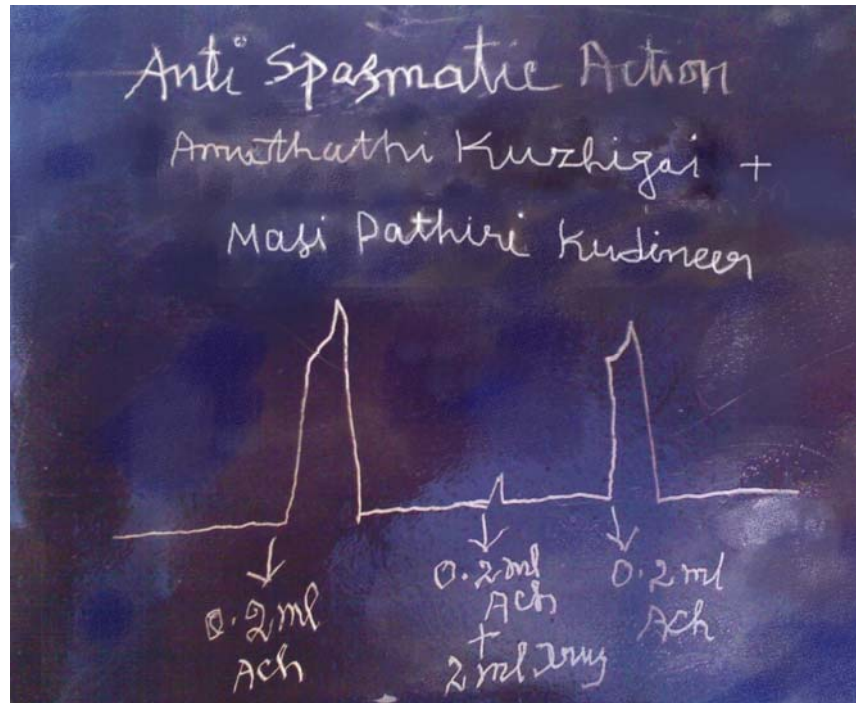 Anti Spasmatic Action
Amuthathi Kuzhigai +
Masi Pathiri Kudineer
0.2ml
Ach
0.2ml
Ach
+
2ml Drug
0.2ml
Ach